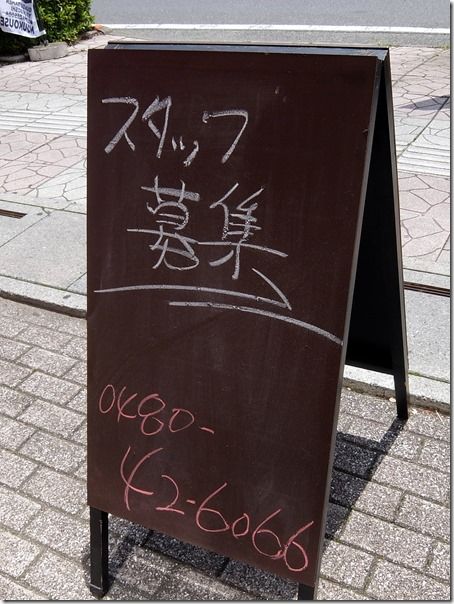 スタッフ
募集
0480-
42-6066